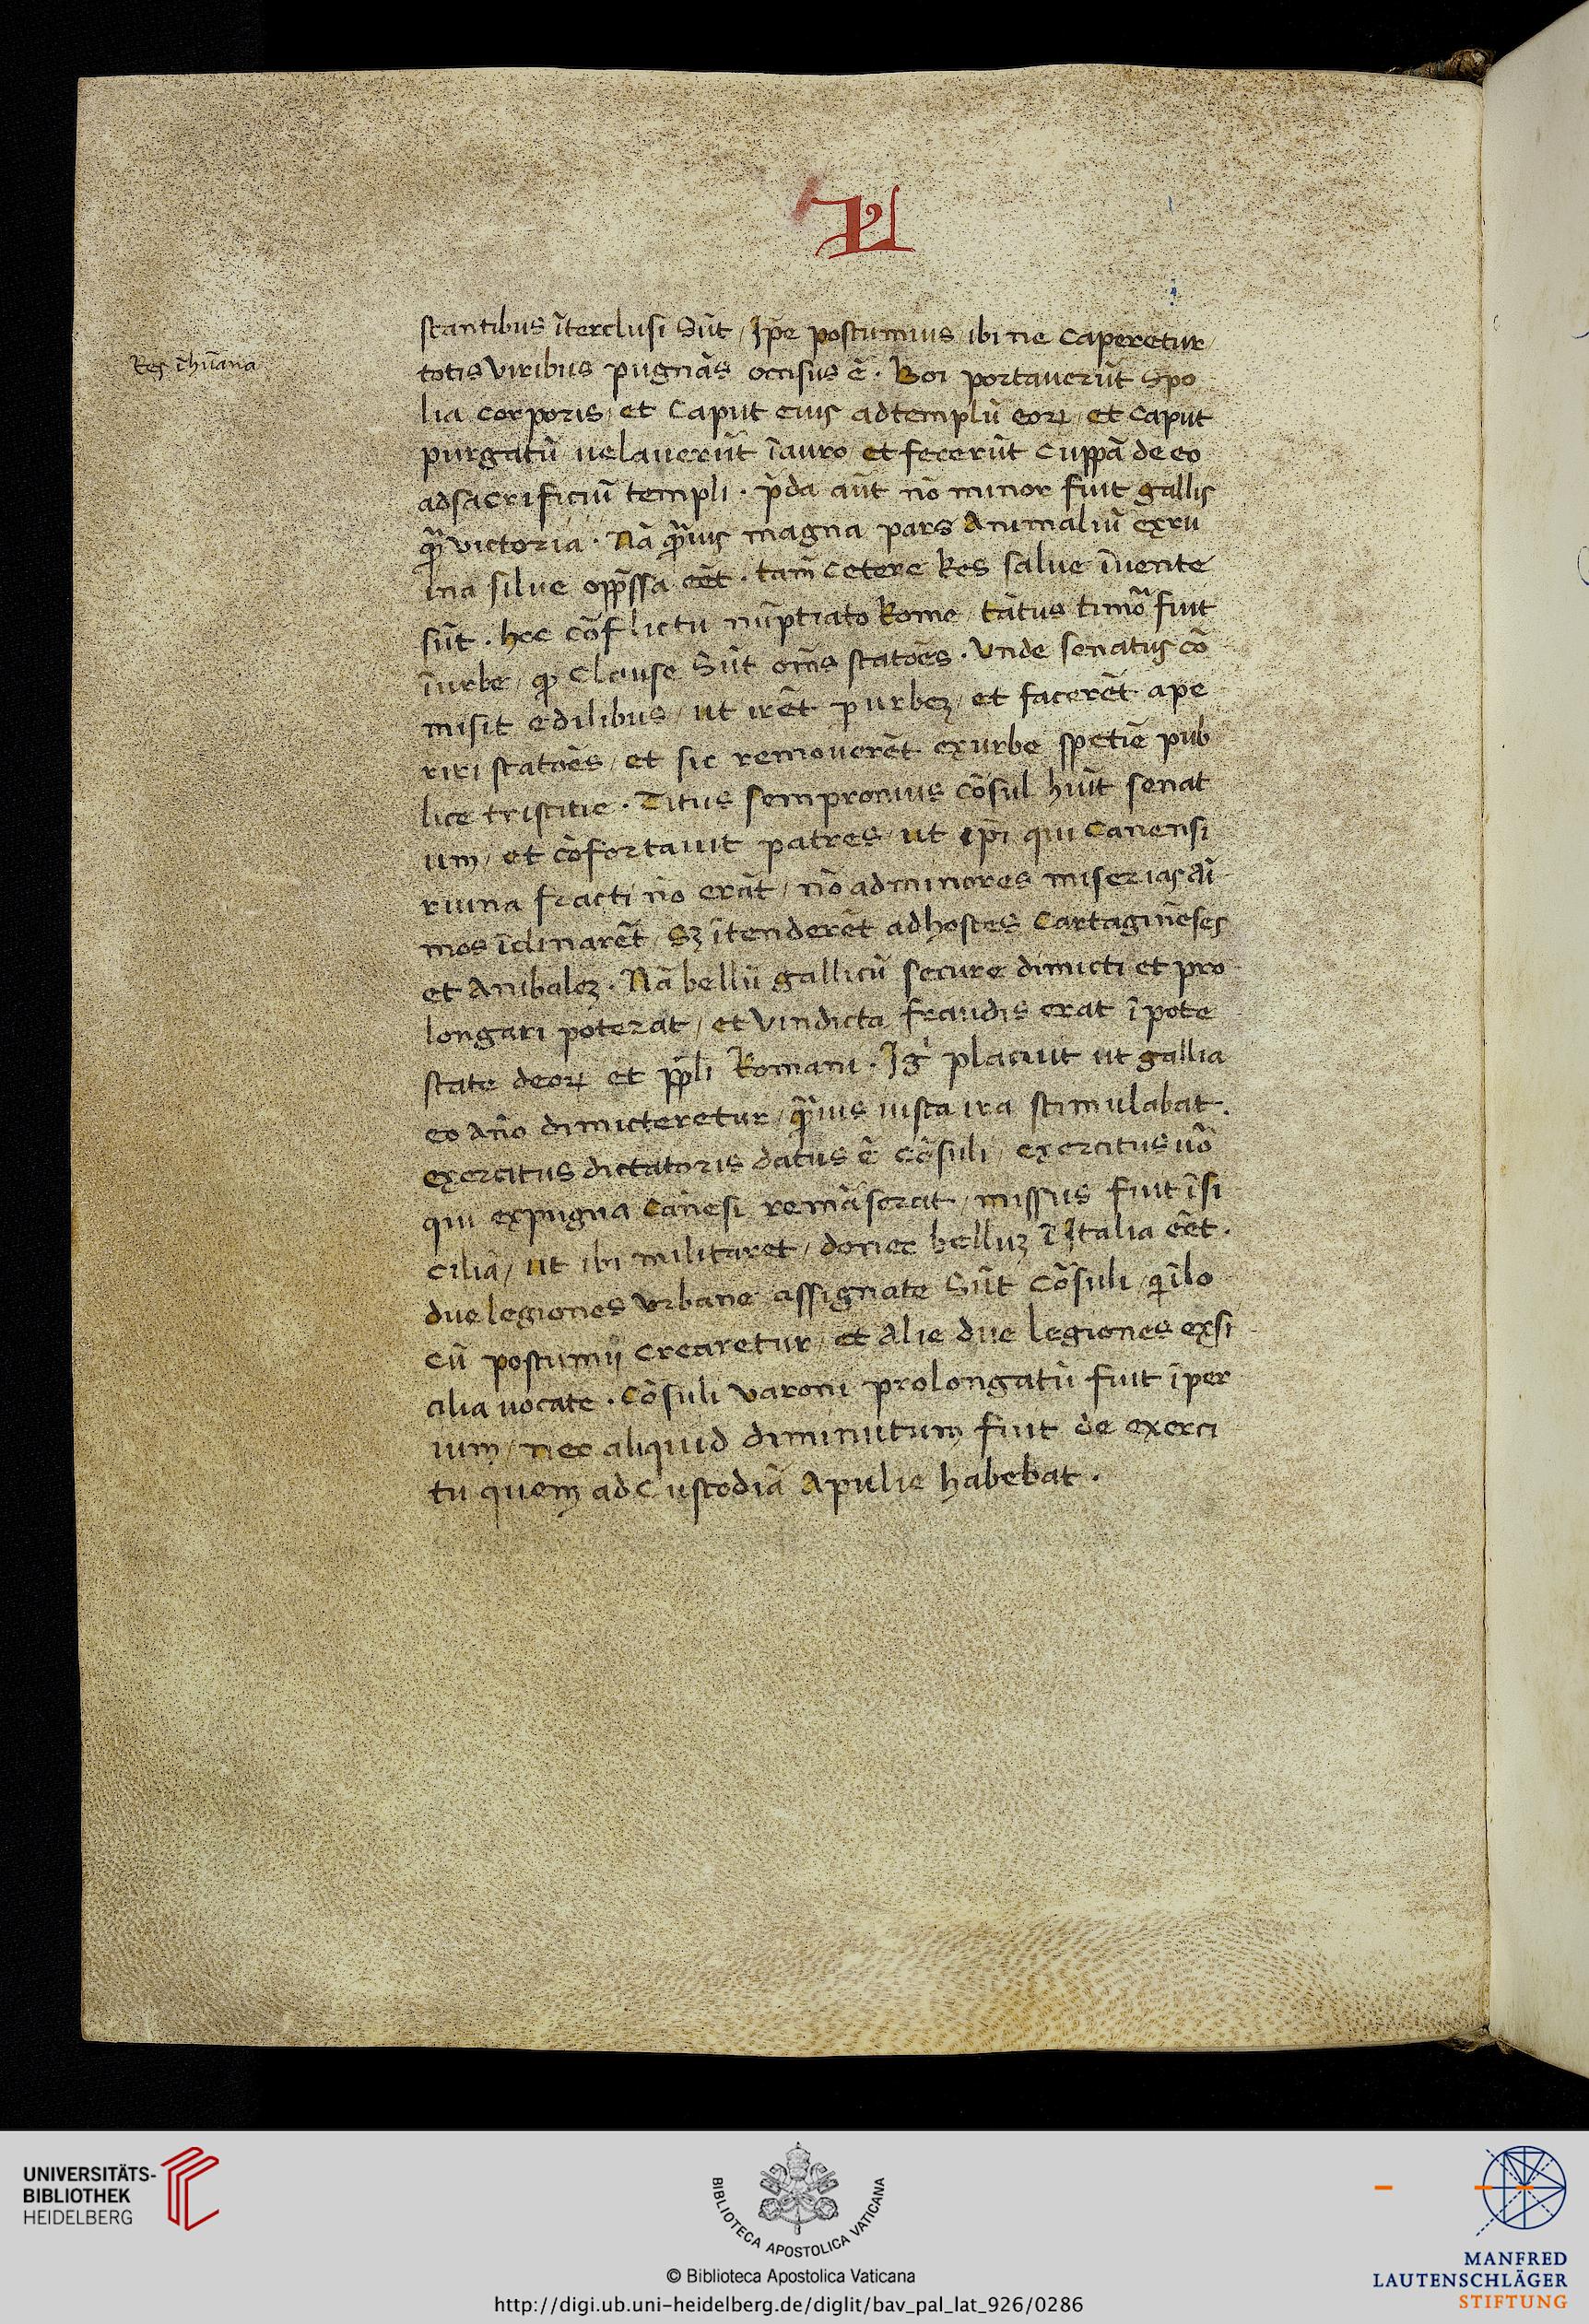 stantibus ĩterclusi sũt / Ip̃e postumius / ibi ne caperetur /
Res ĩhũana
totis viribus pugnãs occisus ẽ . Boi portaverũt spo
lia corporis / et caput eius adtemplũ eoꝝ / et caput
purgatũ uelaverũt ĩauro / et fecerũt cuppã de eo
adsacrificiũ templi . p̃da aũt nõ minor fuit gallis
q̃ victoria . Nã q̃uis magna pars animaliũ exru
ina silue opp̃ssa eẽt . tam̃ cetere res salue ĩuente
sũt . hoc cõflictu nũptiato Rome / tãtus timõ fuit
ĩurbe / ꝙ clause sũt om̃s statões . Unde senatus cõ
misit edilibus / ut irẽt p urbeꝫ / et facerẽt ape
riri statões / et sic removerẽt exurbe spetiẽ pub
lice tristitie . Titus sempronius cõsul hũit senat
um / et cõfortavit patres / ut ip̃i qui canensi
ruina fracti nõ erãt / nõ adminores miserias ãi
mos ĩclinarẽt / sꝫ ĩtenderẽt adhostes cartaginẽses
et Anibaleꝫ . Nã bellũ gallicũ secure dimicti et pro
longari poterat / et vindicta fraudis erat ĩ pote
state deoꝝ et pp̃li Romani . Ig̃ placuit ut gallia
eo año dimicteretur / q̃uis iusta ira stimulabat .
exercitus dictatoris datus ẽ cõsuli / exercitus uõ
qui expugna canẽsi remãserat / missus fuit ĩ si
ciliã / ut ibi militaret / donec belluꝫ ĩ Italia eẽt .
due legiones urbane assignate sũt cõsuli / q̃ ĩ lo
cũ postumij crearetur / et alie due legiones exsi
cilia vocate . cõsuli varoni prolongatũ fuit ĩper
ium / nec aliquid diminutum fuit de exerci
tu quem ad custodiã Apulie habebat .
UNIVERSITÄTS-
BIBLIOTHEK
HEIDELBERG
BIBLIOTECA APOSTOLICA VATICANA
© Biblioteca Apostolica Vaticana
http://digi.ub.uni-heidelberg.de/diglit/bav_pal_lat_926/0286
MANFRED
LAUTENSCHLÄGER
STIFTUNG